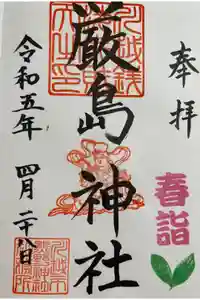 奉拝
春詣
厳島神社
令和五年 四月二十八日